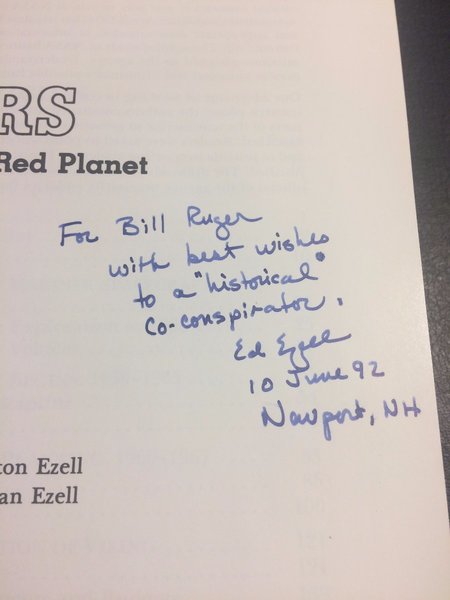 RS
Red Planet
For Bill Ruger
with best wishes
to a "historical"
co-conspirator.
Ed Ezell
10 June 92
Newport, NH
ton Ezell
an Ezell